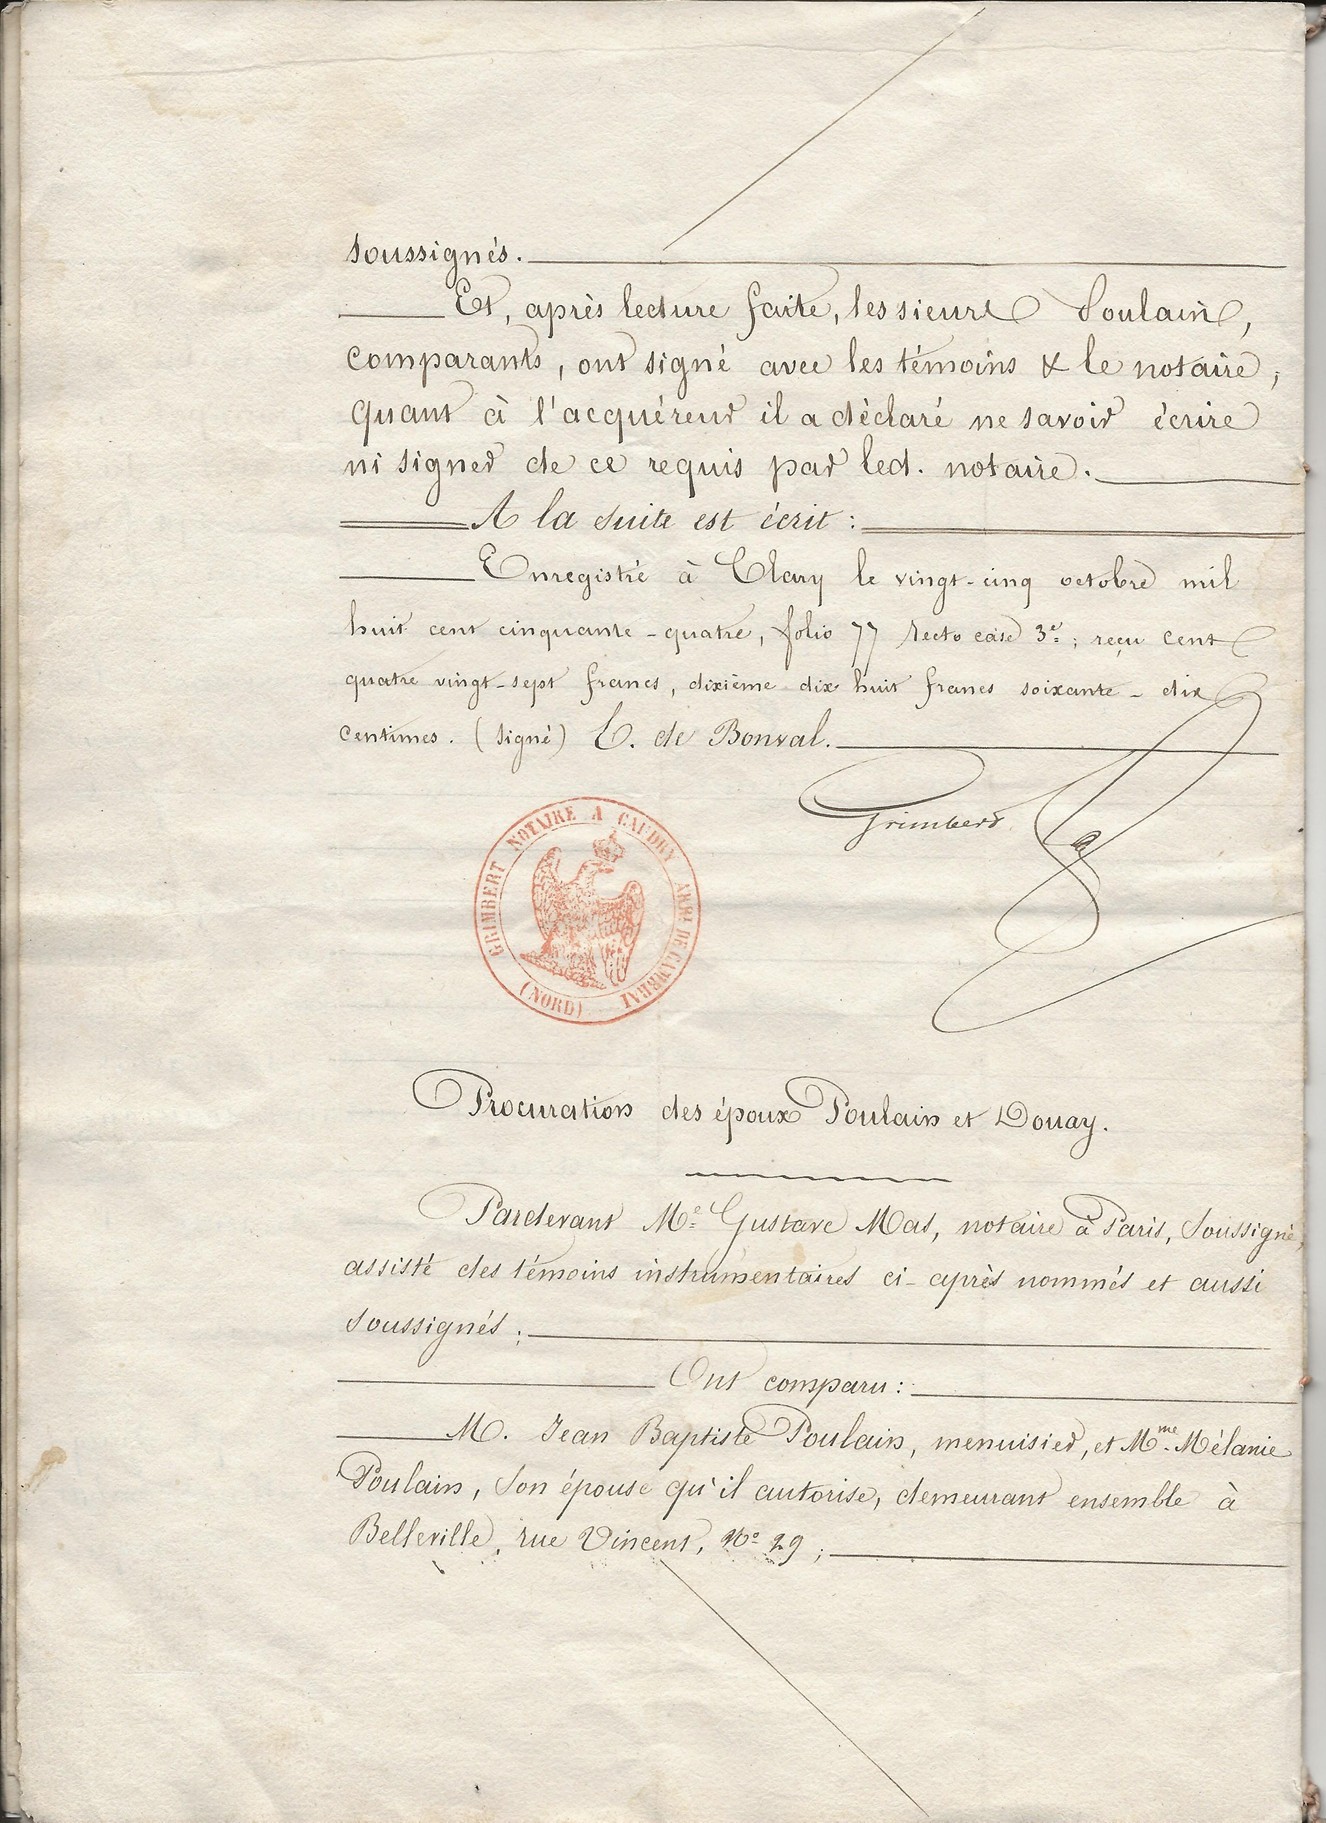 soussignés.
Et, après lecture faite, les sieurs Poulain,
comparants, ont signé avec les témoins & le notaire,
quant à l'acquéreur il a déclaré ne savoir écrire
ni signer de ce requis par led. notaire.
A la suite est écrit :
Enregistré à Clary le vingt-cinq octobre mil
huit cent cinquante-quatre, folio 77 recto case 3e; reçu cent
quatre vingt-sept francs, dixième dix huit francs soixante-dix
centimes. (signé) C. de Bonval.
Grimbert
GRIMBERT NOTAIRE A CAUDRY ARRt DE CAMBRAI
(NORD)
Procuration des époux Poulain et Douay.
Pardevant Me Gustave Mas, notaire à Paris, soussigné,
assisté des témoins instrumentaires ci-après nommés et aussi
soussignés;
Ont comparu :
M. Jean Baptiste Poulain, menuisier, et Mme Mélanie
Poulain, son épouse qu'il autorise, demeurant ensemble à
Belleville, rue Vincent, No 29;